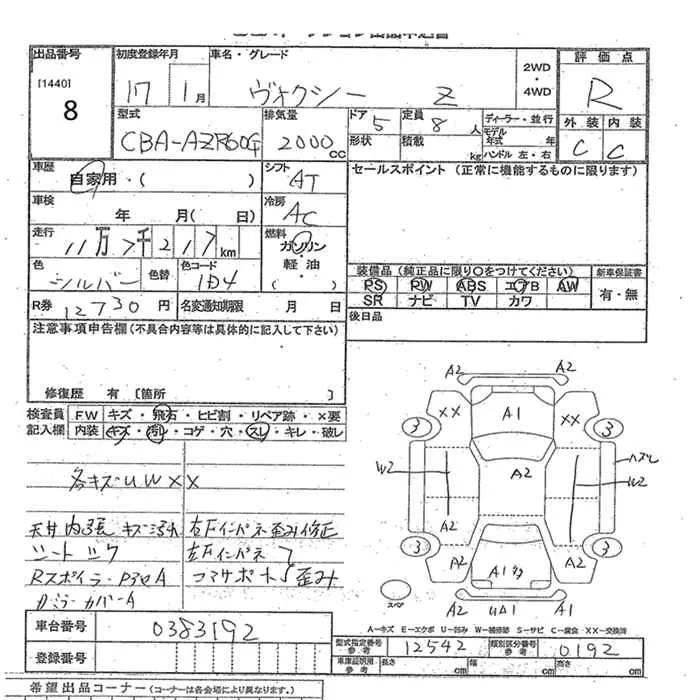 出品番号
[1440]
8
初度登録年月
17 1月
車名・グレード
ヴォクシー Z
2WD
・
4WD
評価点
R
外装 内装
C C
型式
CBA-AZR60G
排気量
2000 CC
ドア
5
形状
定員
8 人
積載
kg
ディーラー・並行
モデル
年式 年
ハンドル 左・右
車歴
自家用・( )
シフト
AT
セールスポイント (正常に機能するものに限ります)
車検
年 月( 日)
冷房
AC
走行
11万 7千 217 km
燃料
ガソリン
・
軽油
( )
色
シルバー
色替
色コード
1D4
装備品 (純正品に限り○をつけてください)
PS PW ABS エアB AW
SR ナビ TV カワ
新車保証書
有・無
R券 12730 円
名変通知期限 月 日
後日品
注意事項申告欄(不具合内容等は具体的に記入して下さい)
修復歴 有 〔箇所 〕
検査員
記入欄
FW キズ・飛石・ヒビ割・リペア跡・×要
内装 キズ・汚れ・コゲ・穴・スレ・キレ・破レ
各キズUWXX
天井内張キズ汚れ
右Fインパネ歪み修正
左Fインパネ
コアサポート歪み
RスポイラーA
カバーA
A2 A2
XX A1 XX
3 3
W2 A2 W2
ハズレ
A2 A2
3 3
A2 A1 A2
スペア
A2 UA1 A1
A-キズ E-エクボ U-凹み W-補修跡 S-サビ C-腐食 XX-交換済
車台番号
0383192
登録番号
型式指定番号
参考
12542
類別区分番号
参考
0192
車庫証明用
参考
長さ cm
幅 cm
高さ cm
希望出品コーナー(コーナーは各会場により異なります。)